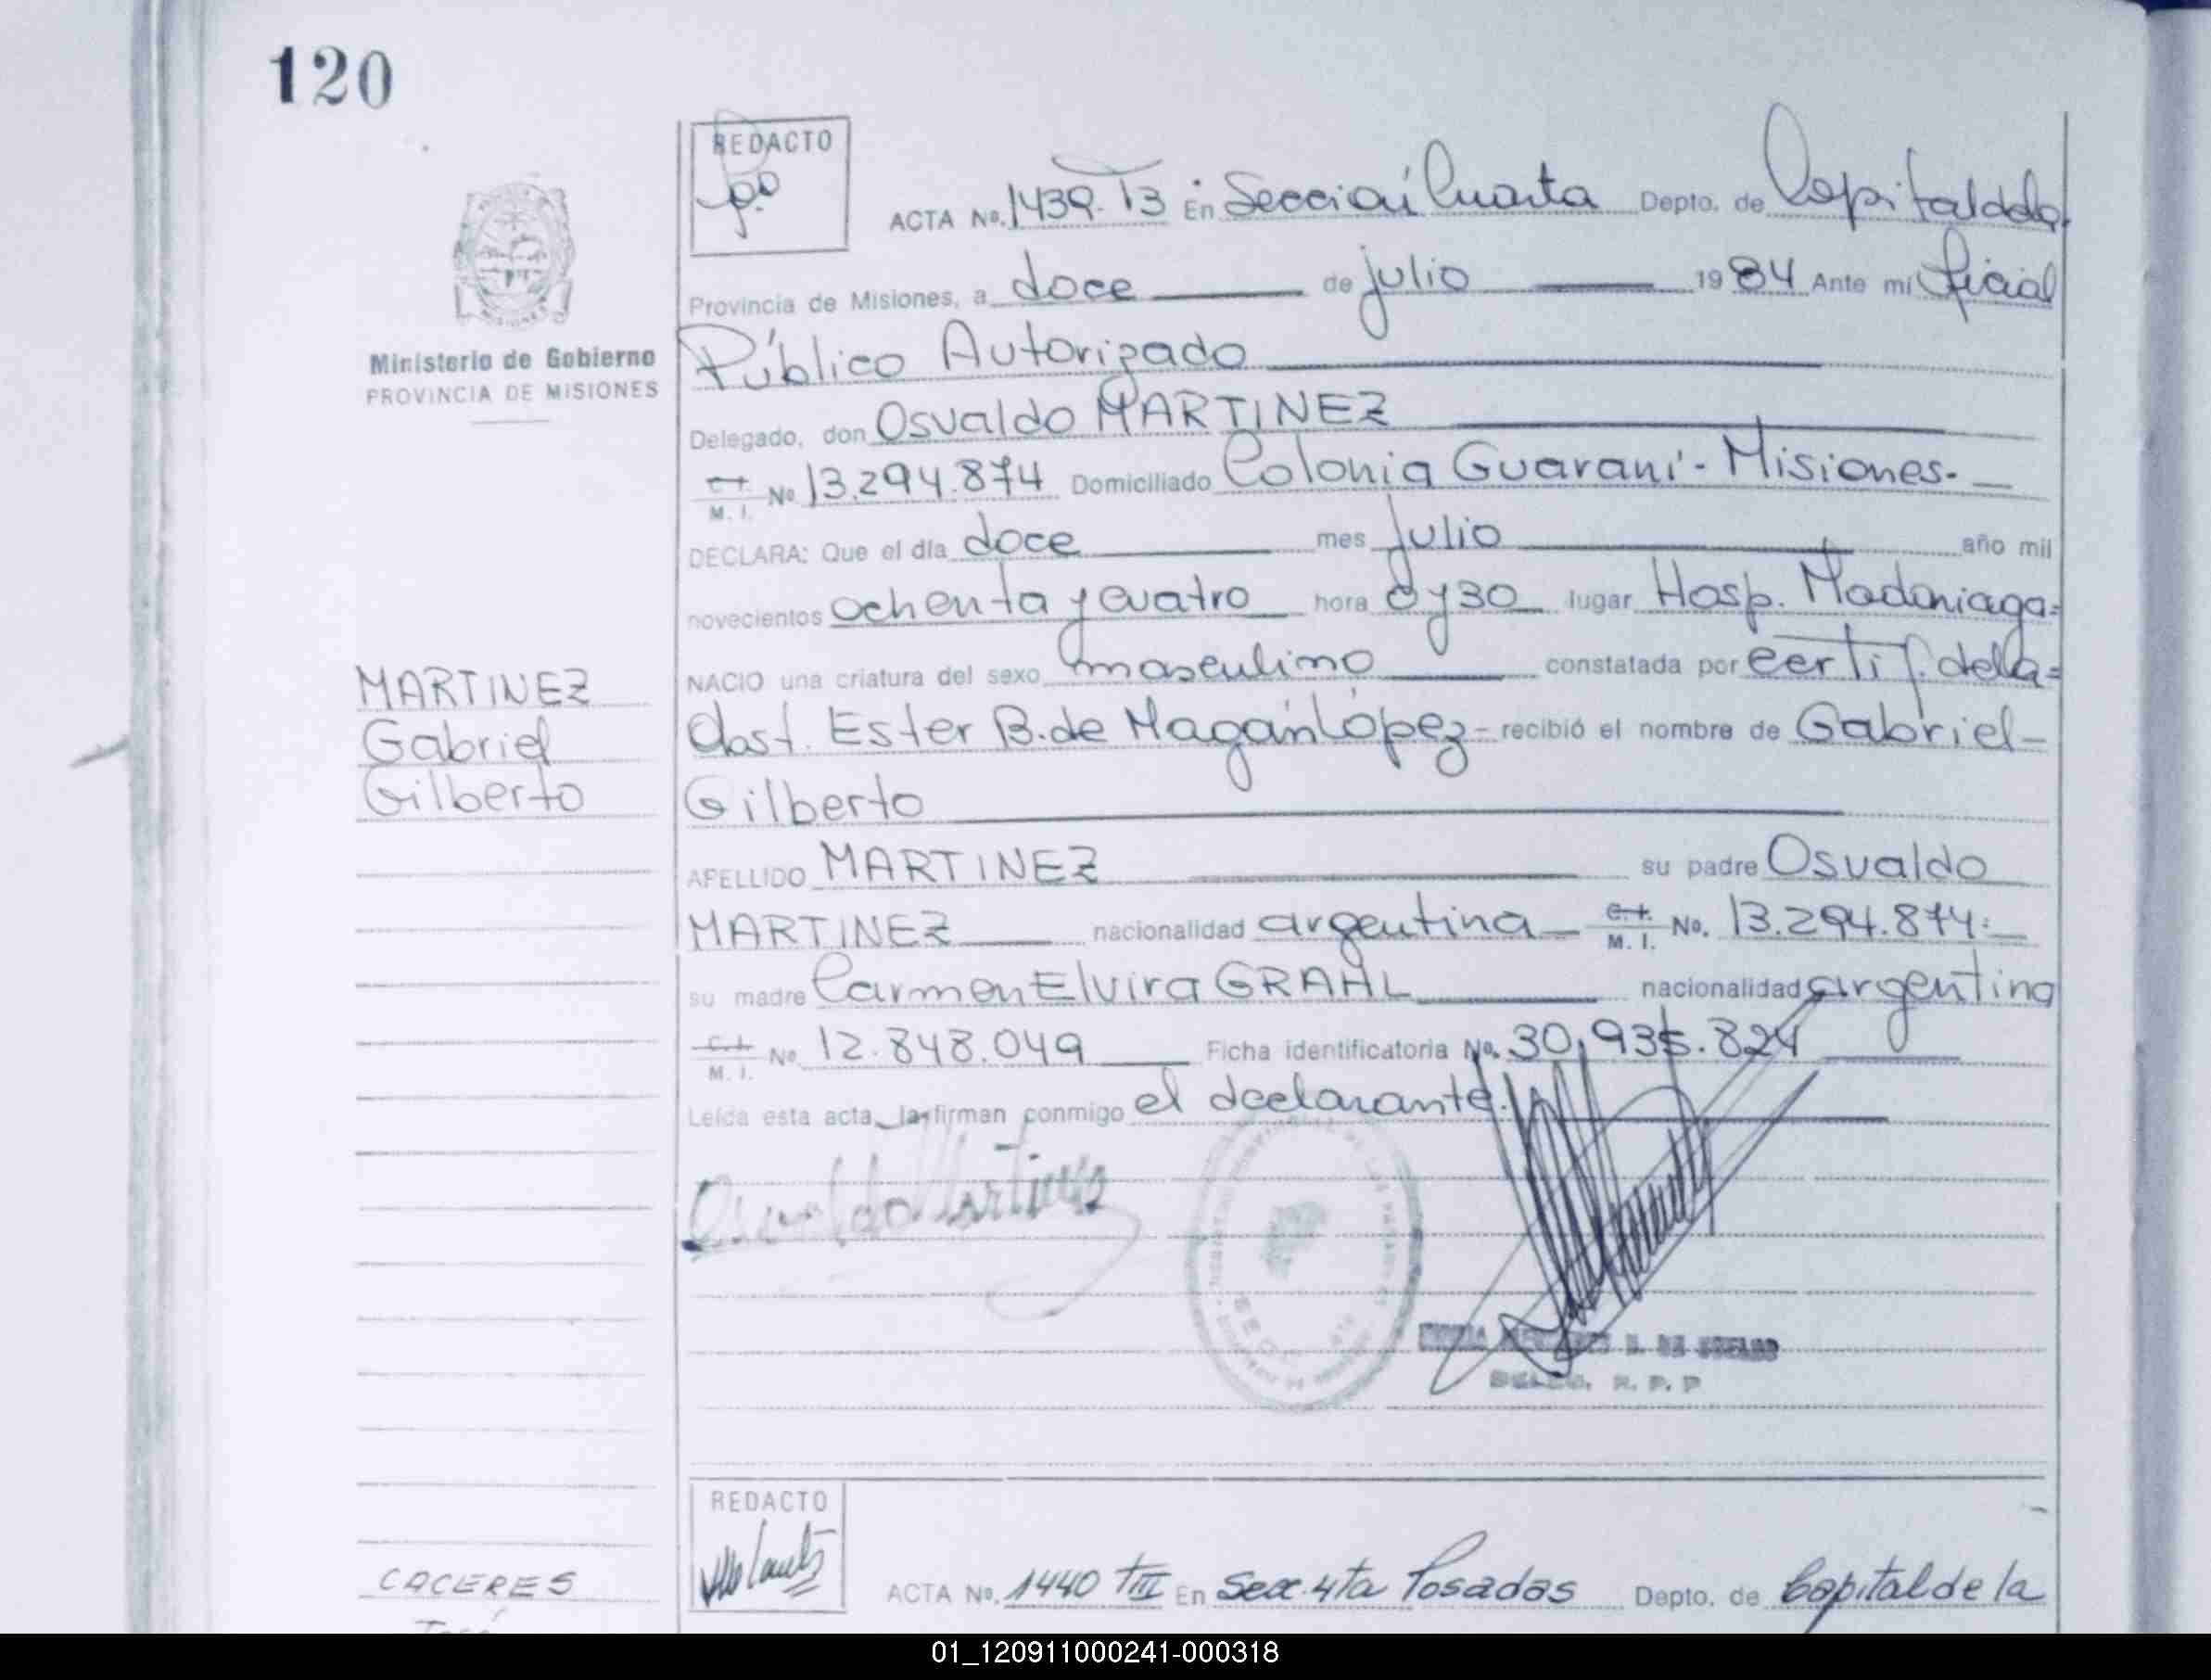 120
REDACTO
ACTA Nº. 1439. T3 En Sección Cuarta Depto. de Capital de la
Provincia de Misiones, a doce de julio 1984 Ante mi Oficial
Ministerio de Gobierno
PROVINCIA DE MISIONES
Público Autorizado
Delegado, don Osvaldo MARTINEZ
C. I. M. I. Nº 13.294.874 Domiciliado Colonia Guaraní - Misiones. -
DECLARA: Que el día doce mes julio año mil
novecientos ochenta y cuatro hora 0 y 30 lugar Hosp. Madariaga=
NACIO una criatura del sexo masculino constatada por certif. de la=
MARTINEZ
Gabriel
Gilberto
Obst. Ester B. de Magán López - recibió el nombre de Gabriel -
Gilberto
APELLIDO MARTINEZ su padre Osvaldo
MARTINEZ nacionalidad argentina C. I. M. I. No. 13.294.874.
su madre Carmen Elvira GRAHL nacionalidad argentina
C. I. M. I. Nº 12.848.049 Ficha identificatoria No. 30.935.824
Leída esta acta, la firman conmigo el declarante.
Osvaldo Martinez
DE
R. P. P
REDACTO
ACTA Nº. 1440 TIII En Secc. 4ta Posadas Depto. de Capital de la
CACERES
José
01_120911000241-000318